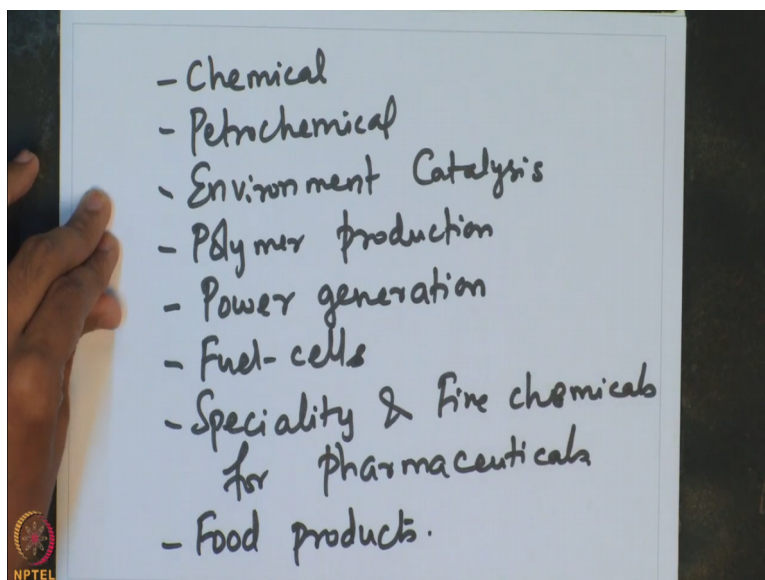 - Chemical
- Petrochemical
- Environment Catalysis
- Polymer production
- Power generation
- Fuel-cells
- Speciality & Fine chemicals
for pharmaceuticals
- Food products.
NPTEL